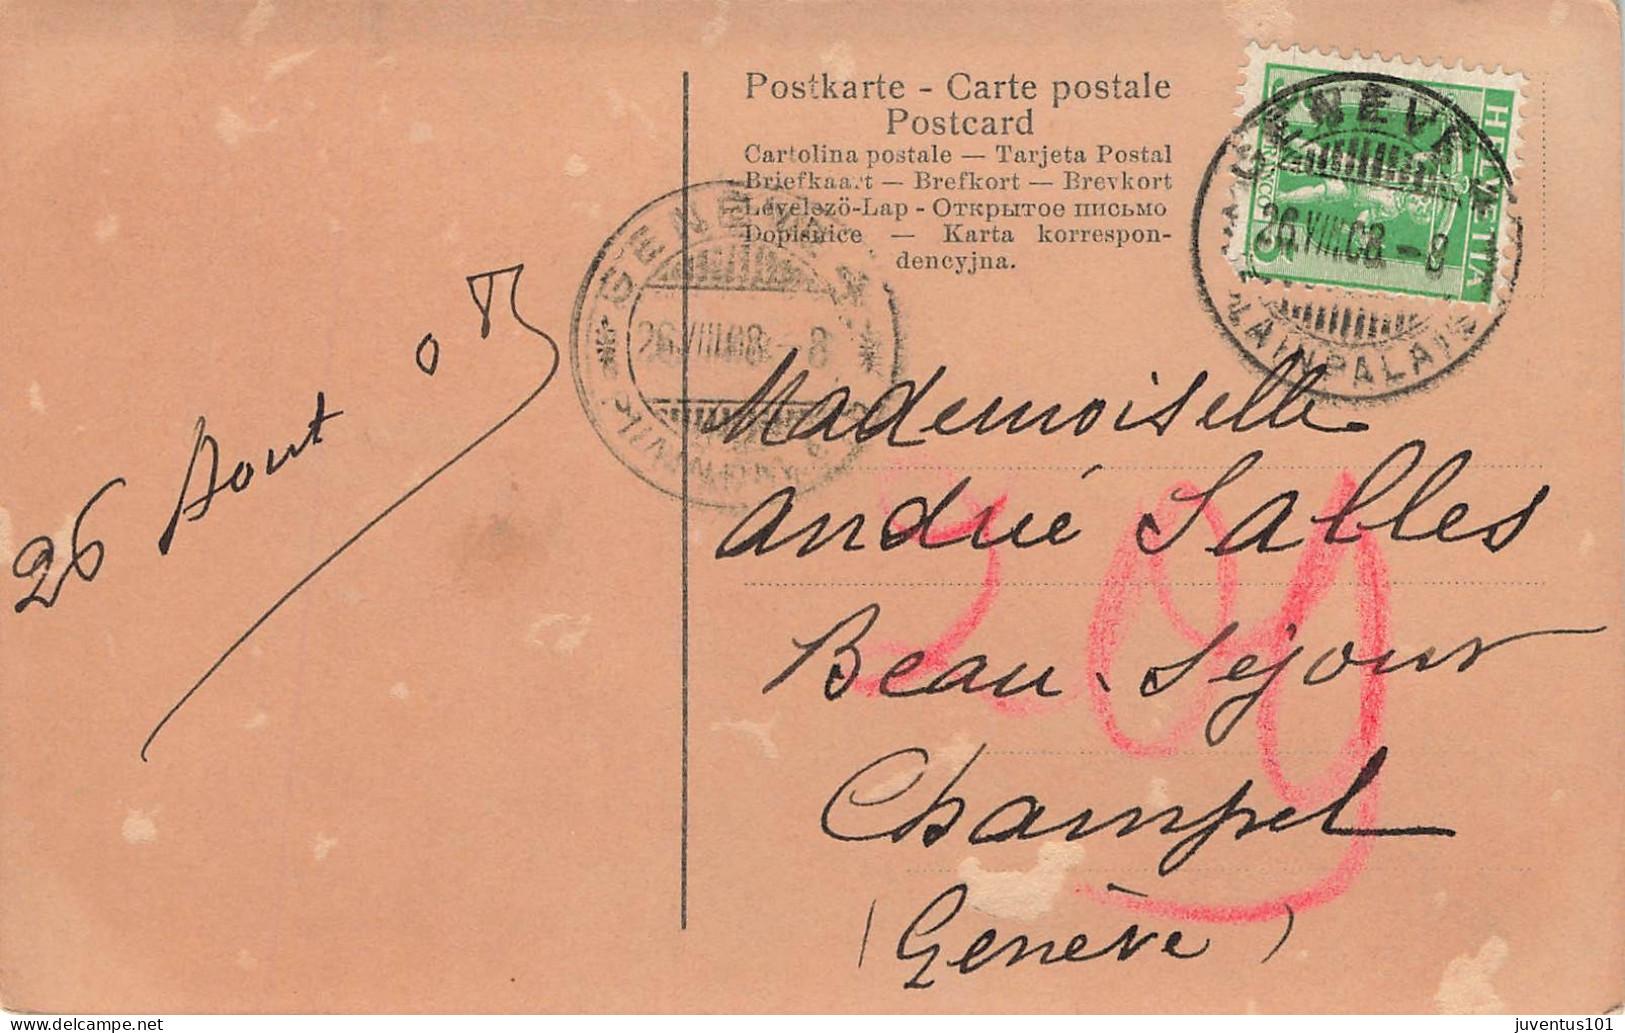 Postkarte - Carte postale
Postcard
Cartolina postale — Tarjeta Postal
Briefkaart — Brefkort — Brevkort
Levelezö-Lap - Открытое письмо
Dopisnice — Karta korrespon-
dencyjna.
HELVETIA
FRANCO
5 5
GENÈVE
26.VIII.08.-8
PLAINPALAIS
GENÈVE
26.VIII.08.-8
26 Aout 08
209
Mademoiselle
Andrée Salles
Beau-Séjour
Champel
(Genève)
www.delcampe.net
juventus101